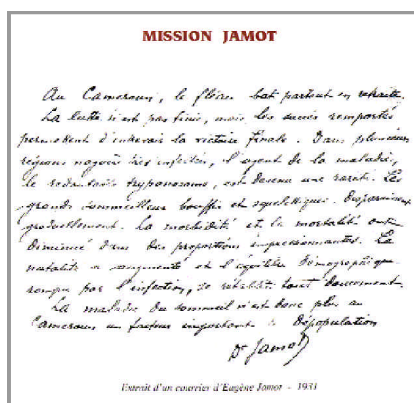 MISSION JAMOT
Au Cameroun, le fléau bat partout en retraite.
La lutte n'est pas finie, mais les succès remportés
permettent d'entrevoir la victoire finale. Dans plusieurs
régions naguère très infectées, l'agent de la maladie,
le redoutable trypanosome, est devenu une rareté. Les
grands sommeilleux bouffis et squelettiques disparaissent
graduellement. La morbidité et la mortalité ont
diminué dans des proportions impressionnantes. La
natalité a augmenté et l'équilibre démographique
rompu par l'infection, se rétablit tout doucement.
La maladie du sommeil n'est donc plus au
Cameroun un facteur important de dépopulation
Dr Jamot
Extrait d'un courrier d'Eugène Jamot - 1931